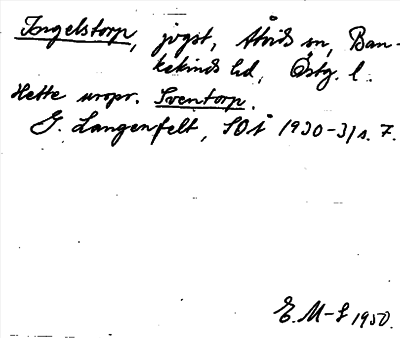 Ingelstorp, jvgst, Åtvids sn, Ban-
kekinds hd, Östg. l.
Hette urspr. Sventorp.
G. Langenfelt, SOÅ 1930-31 s. 7.
E. M-L 1950.